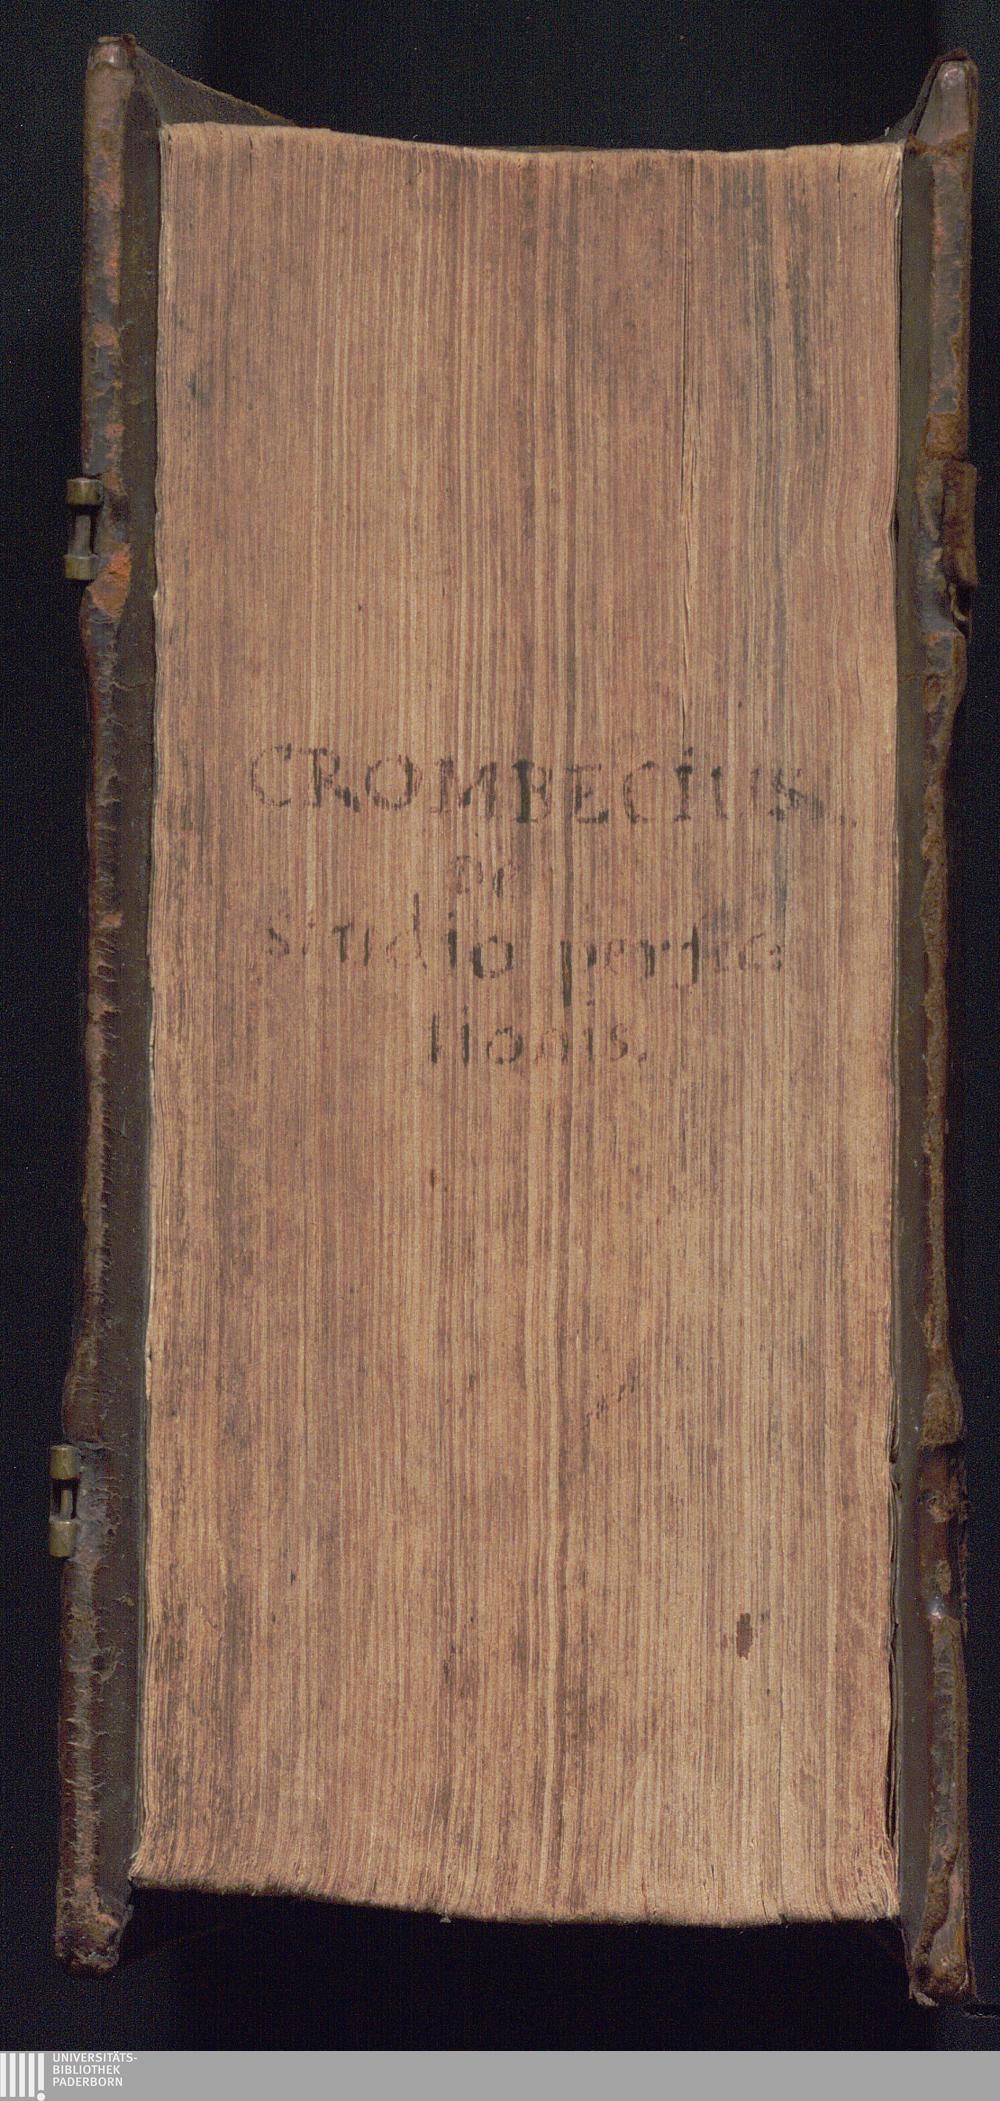 CROMBECIUS.
De
studio perfec
tionis.
UNIVERSITÄTS-
BIBLIOTHEK
PADERBORN